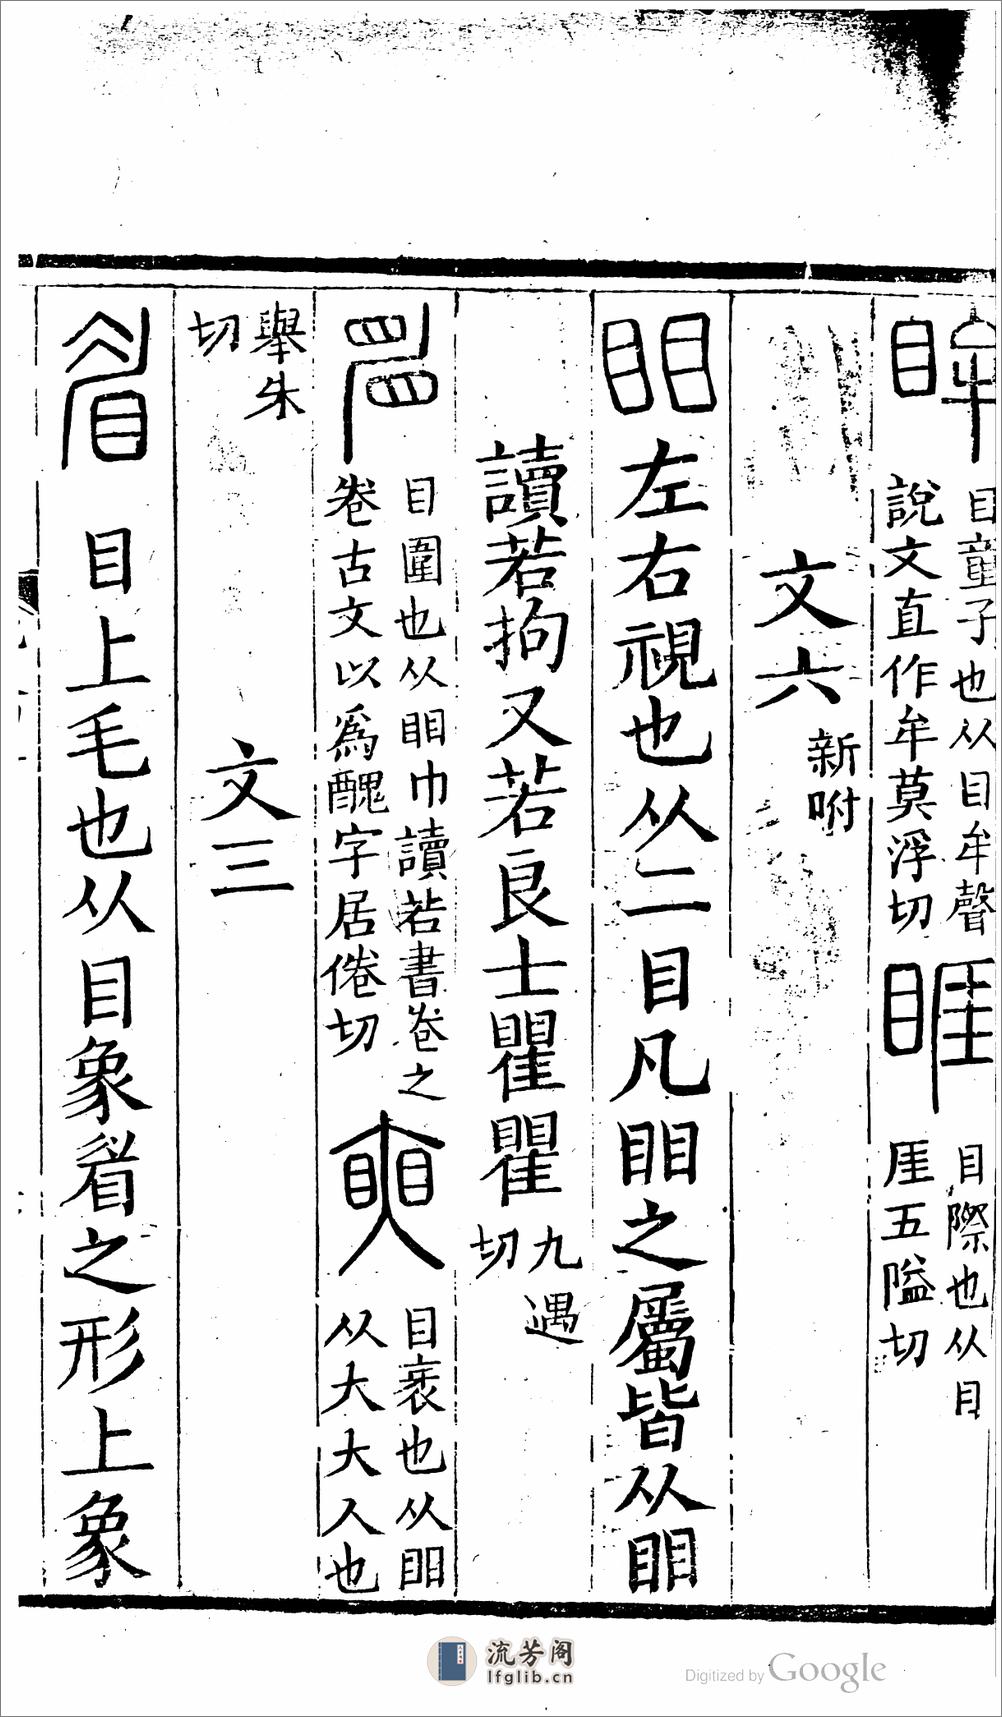 眸 目童子也从目牟聲
說文直作牟莫浮切
睚 目際也从目
厓五隘切
文六 新附
䀠 左右視也从二目凡䀠之屬皆从䀠
讀若拘又若良士瞿瞿 九遇
切
𥆞 目圍也从䀠𠂆讀若書卷之
卷古文以為醜字居倦切
𡘲 目衺也从䀠
从大大人也
舉朱
切
文三
眉 目上毛也从目象眉之形上象
流芳阁
lfglib.cn
Digitized by Google